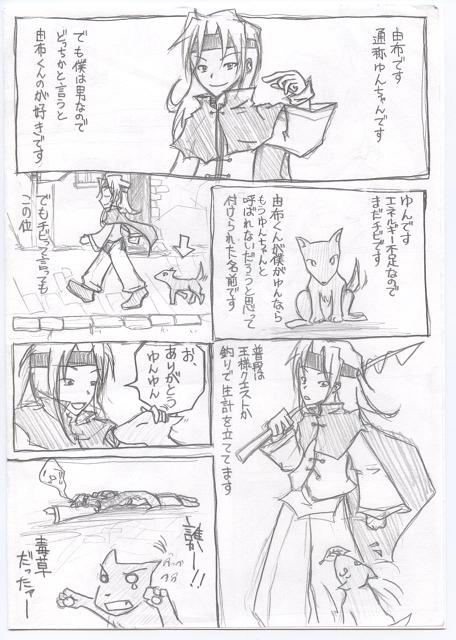 由布です
通称ゆんちゃんです
でも僕は男なので
どっちかと言うと
由布くんのが好きです
ゆんです
エネルギー不足なので
まだチビです
由布くんが僕がゆんなら
もうゆんちゃんと
呼ばれないだろうと思って
付けられた名前です
でもチビって言っても
この位
普段は
王様クエストか
釣りで生計を立ててます
お、
ありがとう
ゆんゆん
誰かー!!
毒草
だったァー